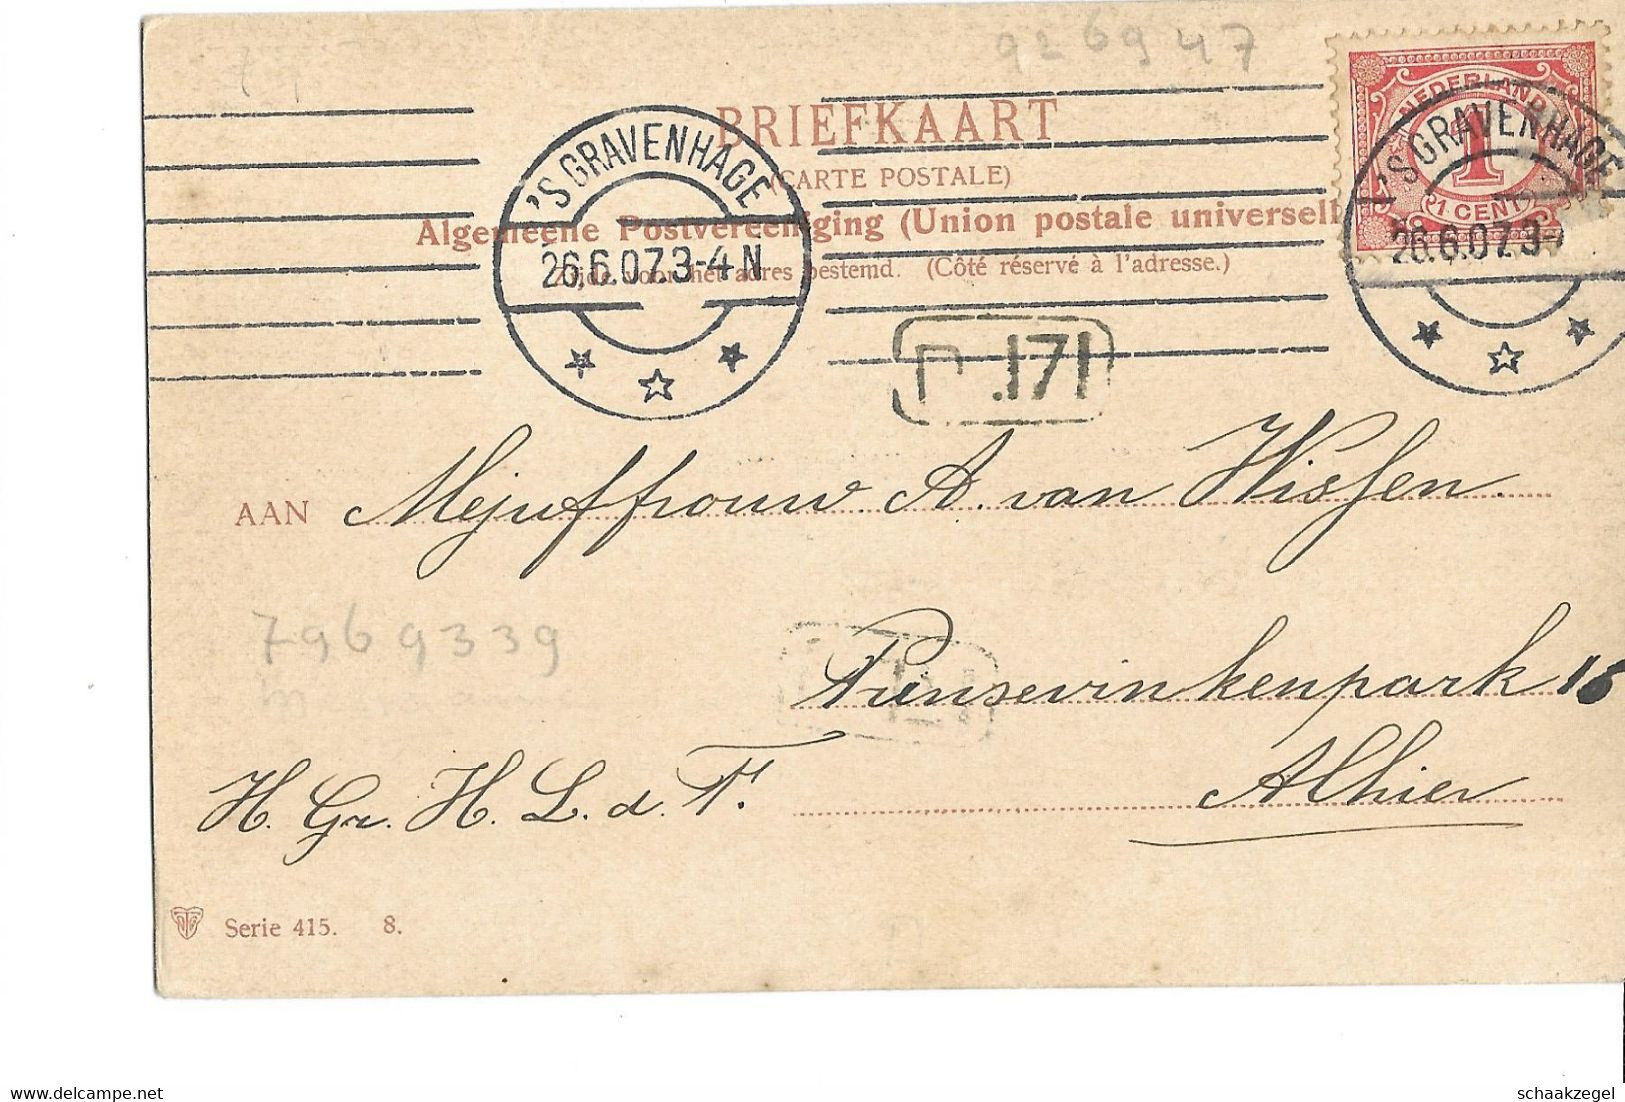 926947
BRIEFKAART
(CARTE POSTALE)
Algemeene Postvereeniging (Union postale universell
Zijde voor het adres bestemd. (Côté réservé à l'adresse.)
'S GRAVENHAGE
26.6.07.3-4 N
NEDERLAND
1
1 CENT
'S GRAVENHAGE
26.6.07.3
171
AAN Mejuffrouw A. van Wissen
7969339
Prinsevinkenpark 16
Alhier
H. Gr. H. L. d. F.
Serie 415. 8.
www.delcampe.net
schaakzegel